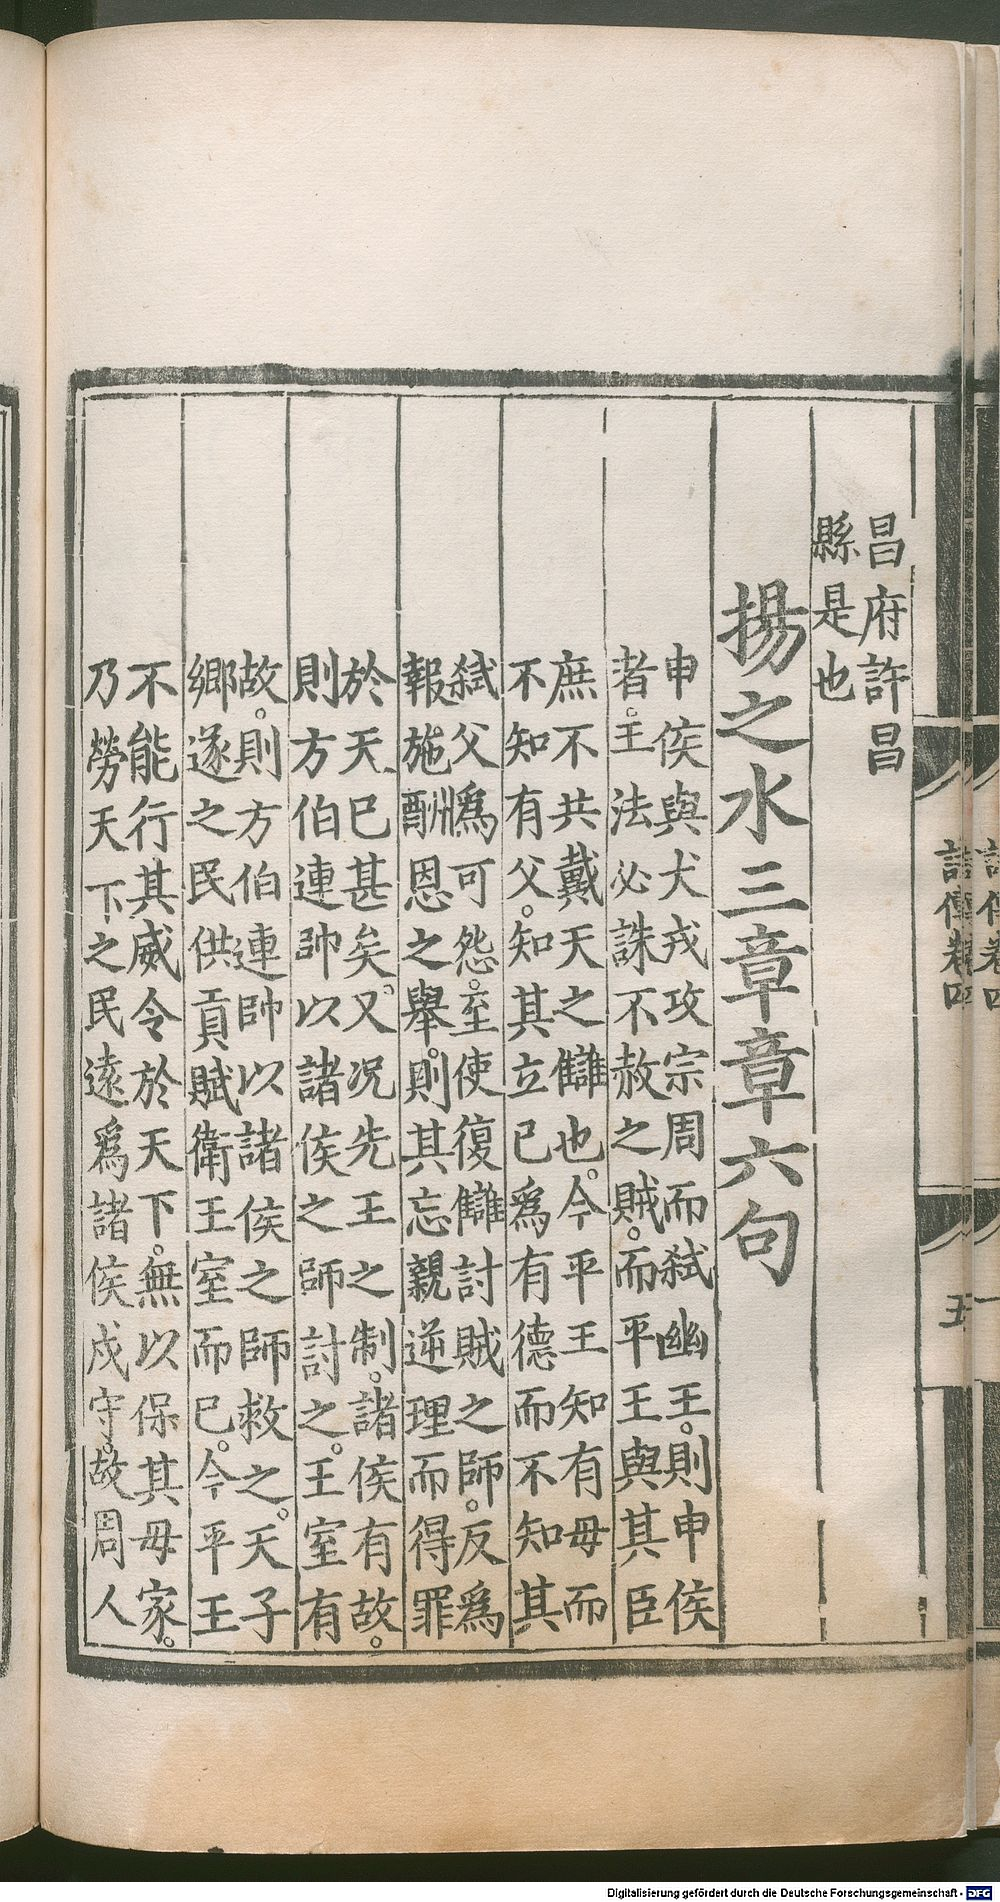 昌府許昌
縣是也
揚之水三章章六句
申侯與犬戎攻宗周而弑幽王。則申侯
者。王法必誅不赦之賊。而平王與其臣
庶不共戴天之讎也。今平王知有母而
不知有父。知其立已爲有德而不知其
弑父爲可怨。至使復讎討賊之師。反爲
報施酬恩之舉。則其忘親逆理而得罪
於天已甚矣。又况先王之制。諸侯有故。
則方伯連帥以諸侯之師討之。王室有
故。則方伯連帥以諸侯之師救之。天子
鄉遂之民供貢賦衛王室而已。今平王
不能行其威令於天下。無以保其母家。
乃勞天下之民遠爲諸侯戍守。故周人
詩傳卷四
五
Digitalisierung gefördert durch die Deutsche Forschungsgemeinschaft - DFG